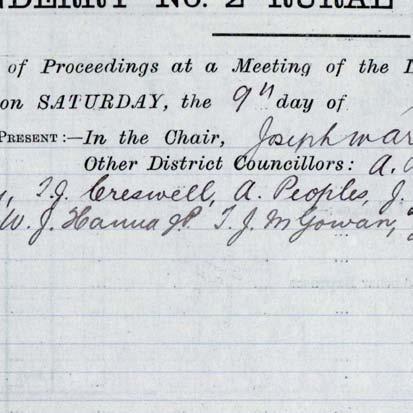 NDERRY No. 2 RURAL
of Proceedings at a Meeting of the
on SATURDAY, the 9th day of
PRESENT:—In the Chair, Joseph
Other District Councillors: A.
T.J. Creswell, A. Peoples, J.
W. J. Hanna JP. T. J. McGowan,